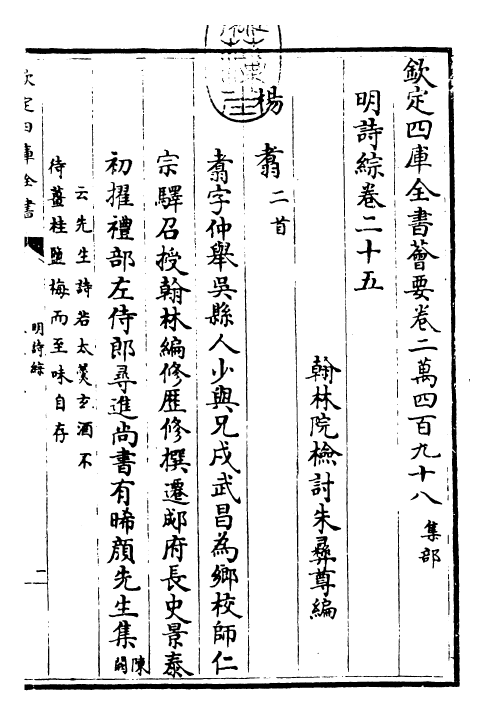 欽定四庫全書薈要卷二萬四百九十八 集部
明詩綜卷二十五
翰林院檢討朱彝尊編
楊翥 二首
翥字仲舉吳縣人少與兄戍武昌為鄉校師仁
宗驛召授翰林編修歷修撰遷郕府長史景泰
初擢禮部左侍郎尋進尚書有晞顏先生集 陳
云先生詩若太羹玄酒不
待薑桂鹽梅而至味自存
欽定四庫全書
明詩綜